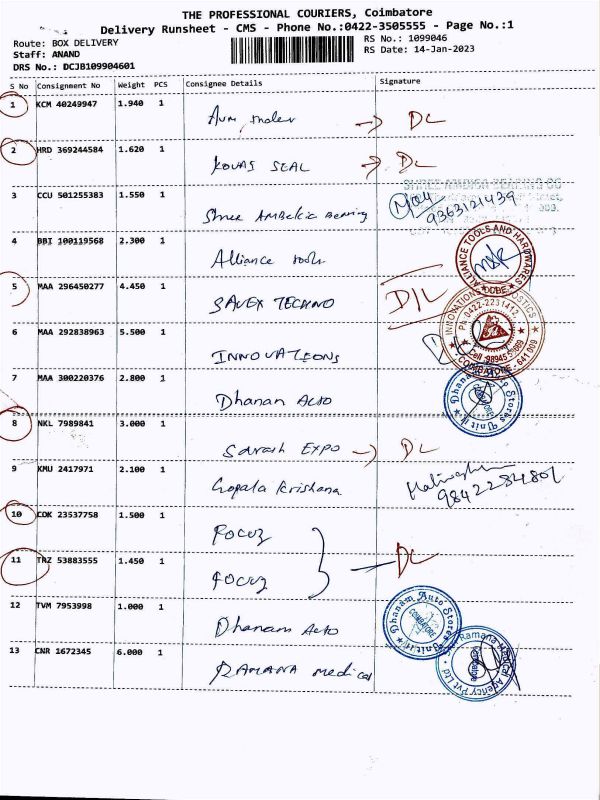 THE PROFESSIONAL COURIERS, Coimbatore
Delivery Runsheet - CMS - Phone No.:0422-3505555 - Page No.:1
Route: BOX DELIVERY RS No.: 1099046
Staff: ANAND RS Date: 14-Jan-2023
DRS No.: DCJB109904601
S No Consignment No Weight PCS Consignee Details Signature
1 KCM 40249947 1.940 1
DL
2 HRD 369244584 1.620 1
KOVAS SEAL DL
3 CCU 501255383 1.550 1
Shree Ambekia Bearing 9363121439
4 BBI 100119568 2.300 1
Alliance tools
ALLIANCE TOOLS AND HARDWARES CBE
5 MAA 296450277 4.450 1
SAVEX TECHNO D/L
6 MAA 292838963 5.500 1
INNOVATIONS
Ph:0422-2231412
COIMBATORE - 641 009
7 MAA 300220376 2.800 1
Dhanam Auto
Dhanam Auto Stores Unit II
8 NKL 7989841 3.000 1
Sarash EXPO DL
9 KMU 2417971 2.100 1
Gopala Krishana 9842284801
10 COK 23537758 1.500 1
Focuz
11 TRZ 53883555 1.450 1
Focuz DL
12 TVM 7953998 1.000 1
Dhanam Auto
Dhanam Auto Stores Unit II COIMBATORE
13 CNR 1672345 6.000 1
RAMANA Medical
Sri Ramana Medical Agency Pvt Ltd